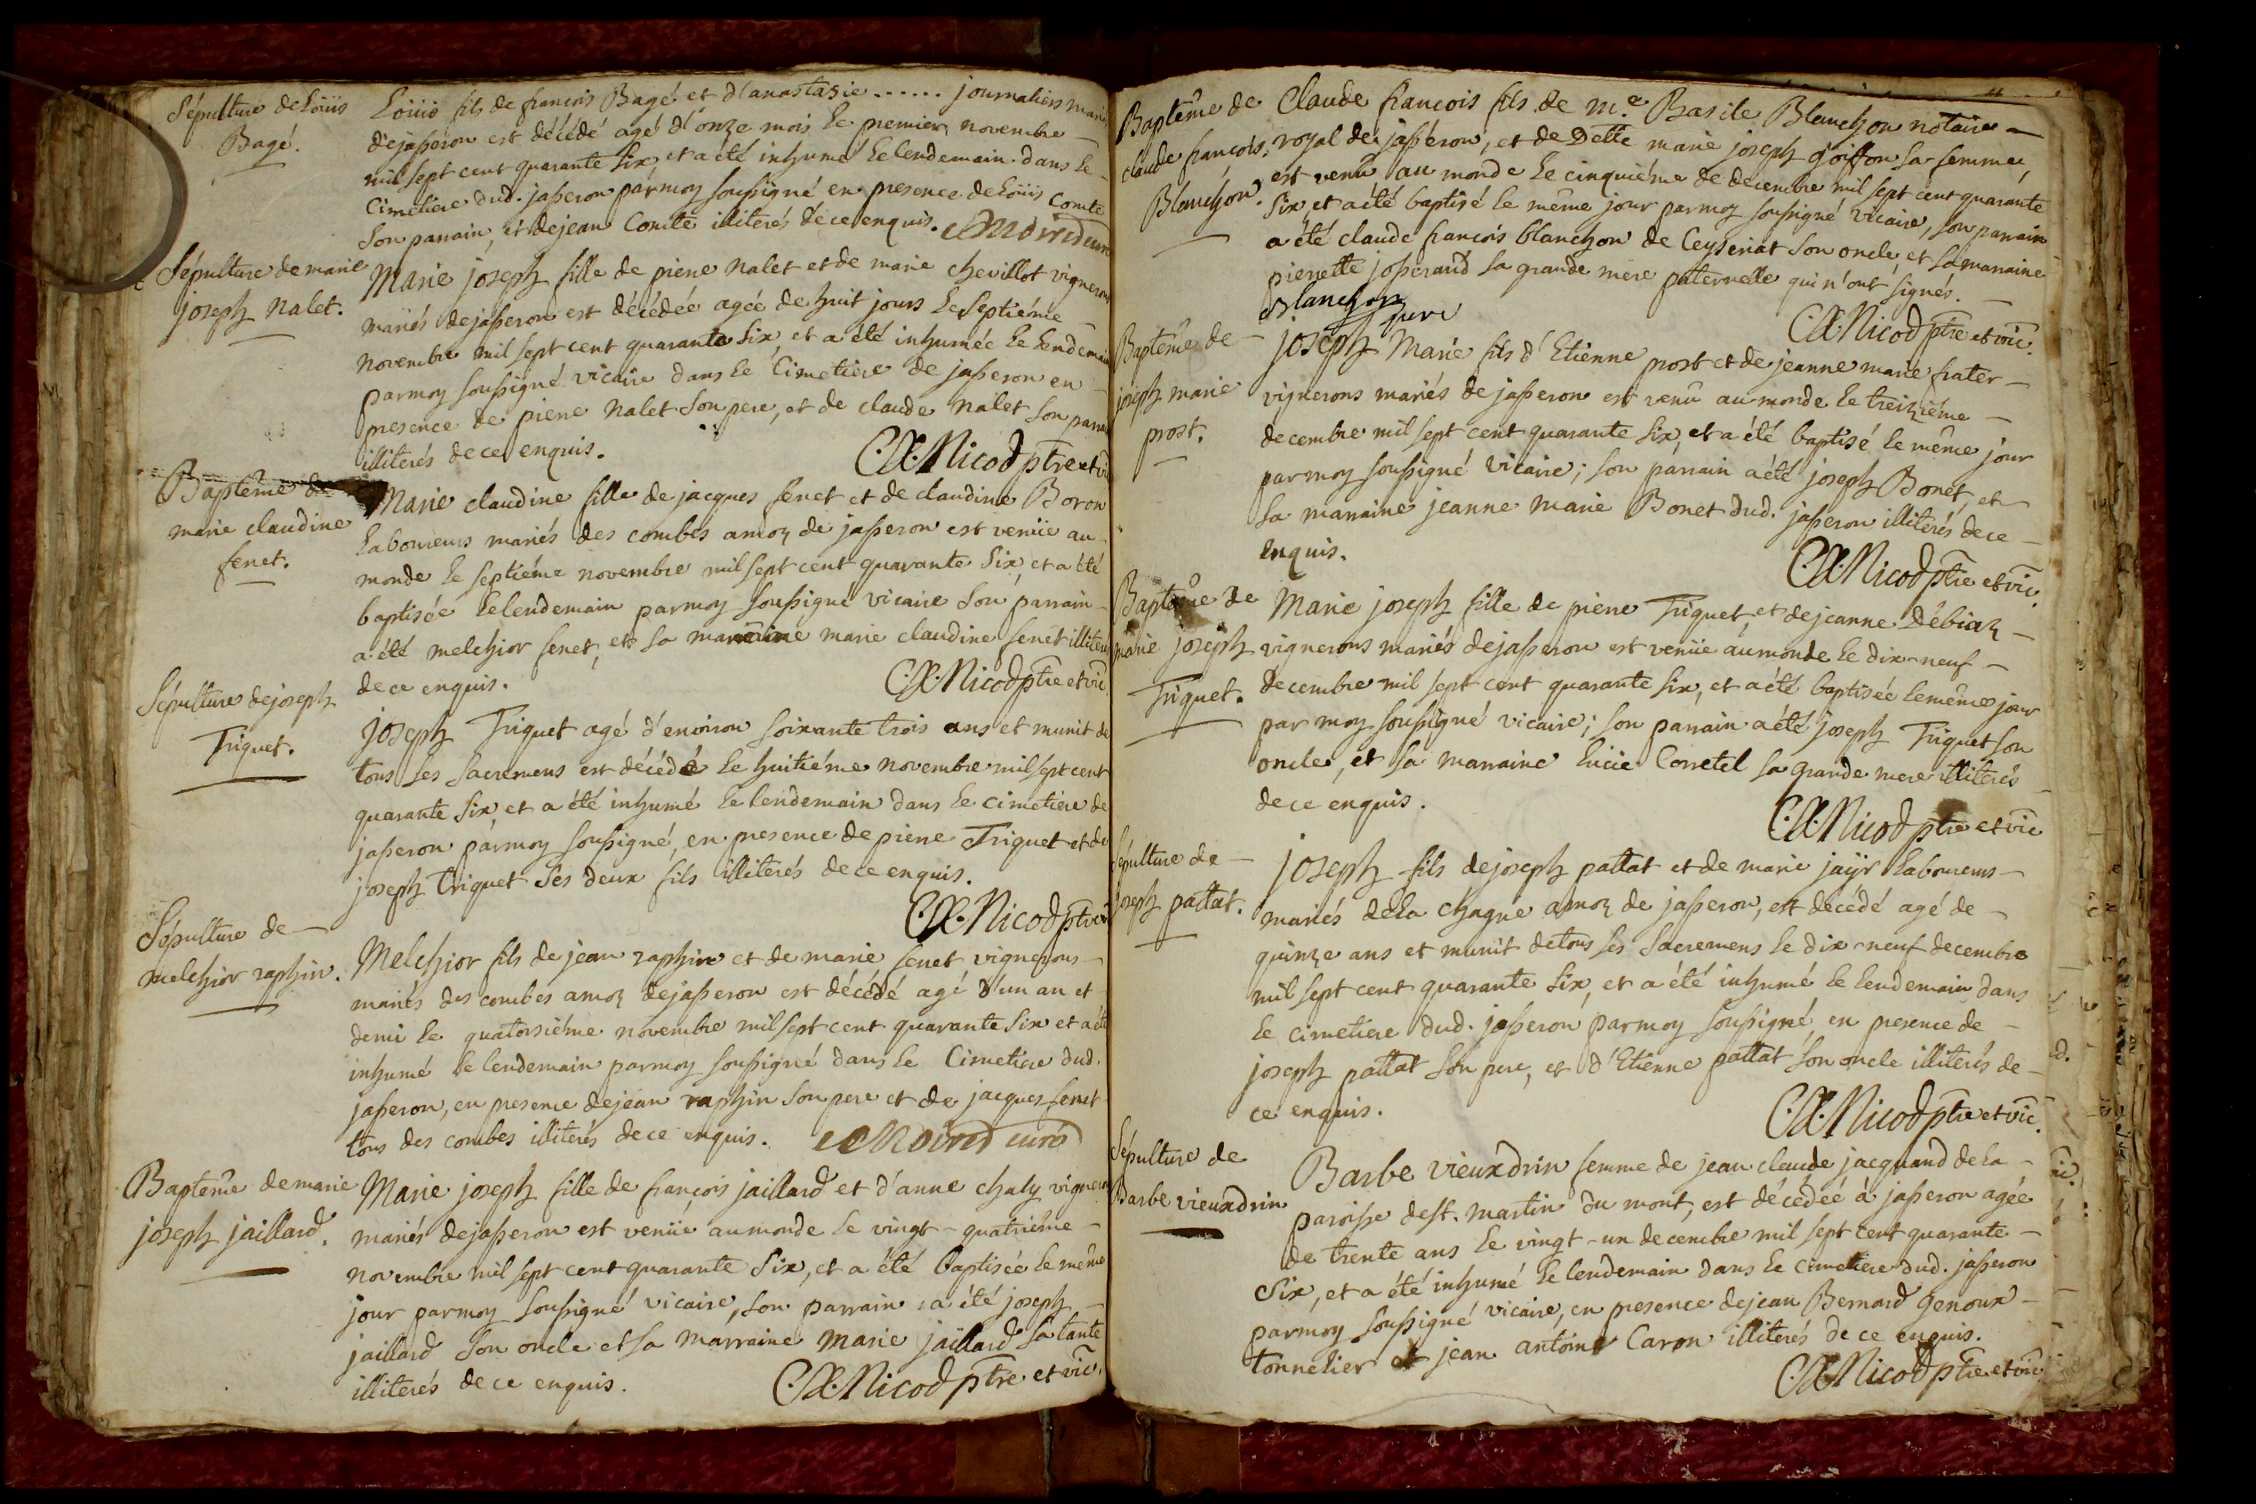 Sépulture de Loüis
Bagé.
Loüis fils de françois Bagé et d'anastasie ...... journaliers mariés
dejasseron est décédé agé d'onze mois le premier novembre
mil sept cent quarante six, et a été inhumé le lendemain dans le
Cimetiere dud. jasseron par moy soussigné en presence de Loüis Comte
son parrain, et de jean Comte illiterés de ce enquis.
Sépulture de marie
joseph nalet.
Marie joseph fille de pierre nalet et de marie chevillot vignerons
mariés de jasseron est décédée agée de huit jours le septiéme
novembre mil sept cent quarante six, et a été inhumée le lendemain
par moy soussigné vicaire dans le Cimetiere de jasseron en
presence de pierre nalet son pere, et de claude nalet son parrain
illiterés de ce enquis.
C.A. Nicod ptre et vic
Baptême de
marie claudine
fenet.
Marie claudine fille de jacques fenet et de claudine Boron
laboureurs mariés des combes amoz de jasseron est venüe au
monde le septiéme novembre mil sept cent quarante six, et a été
baptisée le lendemain par moy soussigné vicaire son parrain
a été melchior fenet, et sa marraine marie claudine fenet illiterés
de ce enquis.
C.A. Nicod ptre et vic.
Sépulture de joseph
Triquet.
joseph Triquet agé d'environ soixante trois ans et munit de
tous ses sacremens est décédé le huitiéme novembre mil sept cent
quarante six, et a été inhumé le lendemain dans le cimetiere de
jasseron par moy soussigné, en presence de pierre Triquet et de
joseph triquet ses deux fils illiterés de ce enquis.
C.A. Nicod ptre et vic
Sépulture de
melchior raphin.
Melchior fils de jean raphin et de marie fenet vignerons
mariés des combes amoz de jasseron est décédé agé d'un an et
demi le quatorsiéme novembre mil sept cent quarante six et a été
inhumé le lendemain par moy soussigné dans le Cimetiere dud.
jasseron, en presence de jean raphin son pere et de jacques fenet
tous des combes illiterés de ce enquis. curé
Baptême de marie
joseph jaillard.
Marie joseph fille de françois jaillard et d'anne chaly vignerons
mariés de jasseron est venüe au monde le vingt-quatriéme
novembre mil sept cent quarante six, et a été baptisée le même
jour par moy soussigné vicaire, son parrain a été joseph
jaillard son oncle et sa marraine marie jaillard sa tante
illiterés de ce enquis.
C.A. Nicod ptre et vic.
Baptême de
claude françois
Blanchon.
Claude françois fils de m.e Basile Blanchon notaire
royal de jasseron, et de Delle marie joseph goiffon sa femme,
est venû au monde le cinquiéme de decembre mil sept cent quarante
six, et a été baptisé le même jour par moy soussigné vicaire, son parrain
a été claude françois blanchon de Ceyseriat son oncle, et sa marraine
pierrette josserand sa grande mere paternelle qui n'ont signés.
Blanchon
C.A. Nicod ptre et vic.
Baptême de
joseph marie
prost.
joseph Marie fils d'Etienne prost et de jeanne marie frater
vignerons mariés de jasseron est venû au monde le treiziéme
decembre mil sept cent quarante six, et a été baptisé le même jour
par moy soussigné vicaire; son parrain a été joseph Bonet, et
sa marraine jeanne marie Bonet dud. jasseron illiterés de ce
enquis.
C.A. Nicod ptre et vic.
Baptême de
marie joseph
Triquet.
Marie joseph fille de pierre Triquet, et de jeanne Débiaz
vignerons mariés de jasseron est venüe au monde le dix-neuf
decembre mil sept cent quarante six, et a été baptisée le même jour
par moy soussigné vicaire; son parrain a été joseph Triquet son
oncle, et sa marraine Lucie Corretel sa grande mere illiterés
de ce enquis.
C.A. Nicod ptre et vic
Sépulture de
joseph pattat.
joseph fils de joseph pattat et de marie jayr laboureurs
mariés de la chagne amoz de jasseron, est décédé agé de
quinze ans et munit de tous ses sacremens le dix-neuf decembre
mil sept cent quarante six, et a été inhumé le lendemain dans
le cimetiere dud. jasseron par moy soussigné en presence de
joseph pattat son pere, et d'Etienne pattat son oncle illiterés de
ce enquis.
C.A. Nicod ptre et vic.
Sépulture de
Barbe vieuxdrin
Barbe vieuxdrin femme de jean claude jacquand de la
paroisse de st. martin du mont, est décédeé à jasseron agée
de trente ans le vingt-un decembre mil sept cent quarante
six, et a été inhumé le lendemain dans le cimetiere dud. jasseron
par moy soussigné vicaire, en presence de jean Bernard genoux
tonnelier et jean antoine Caron illiterés de ce enquis.
C.A. Nicod ptre et vic